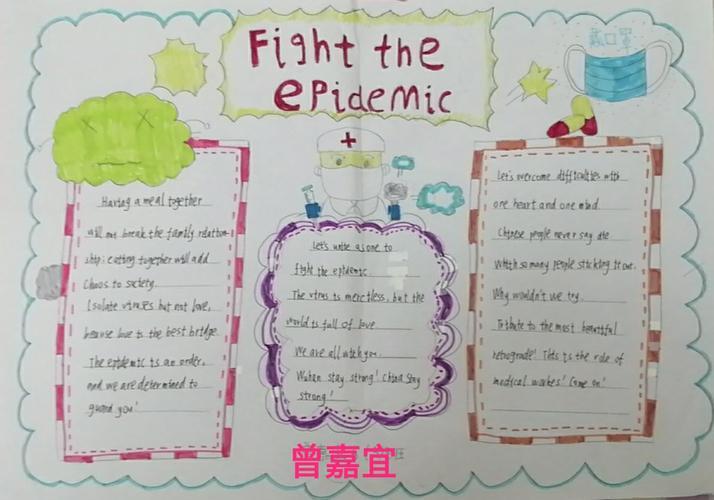 Fight the
epidemic
戴口罩
Having a meal together
will not break the family relation-
ship; eating together will add
Chaos to society.
Isolate viruses but not love,
because love is the best bridge.
The epidemic is an order,
and we are determined to
guard you!
Let's unite as one to
fight the epidemic
The virus is merciless, but the
world is full of love
We are all with you.
Wuhan stay strong! China stay
strong!
Let's overcome difficulties with
one heart and one mind.
Chinese people never say die
With so many people sticking it out.
Why wouldn't we try.
Tribute to the most beautiful
retrograde! This is the role of
medical workes! Come on!
曾嘉宜
班